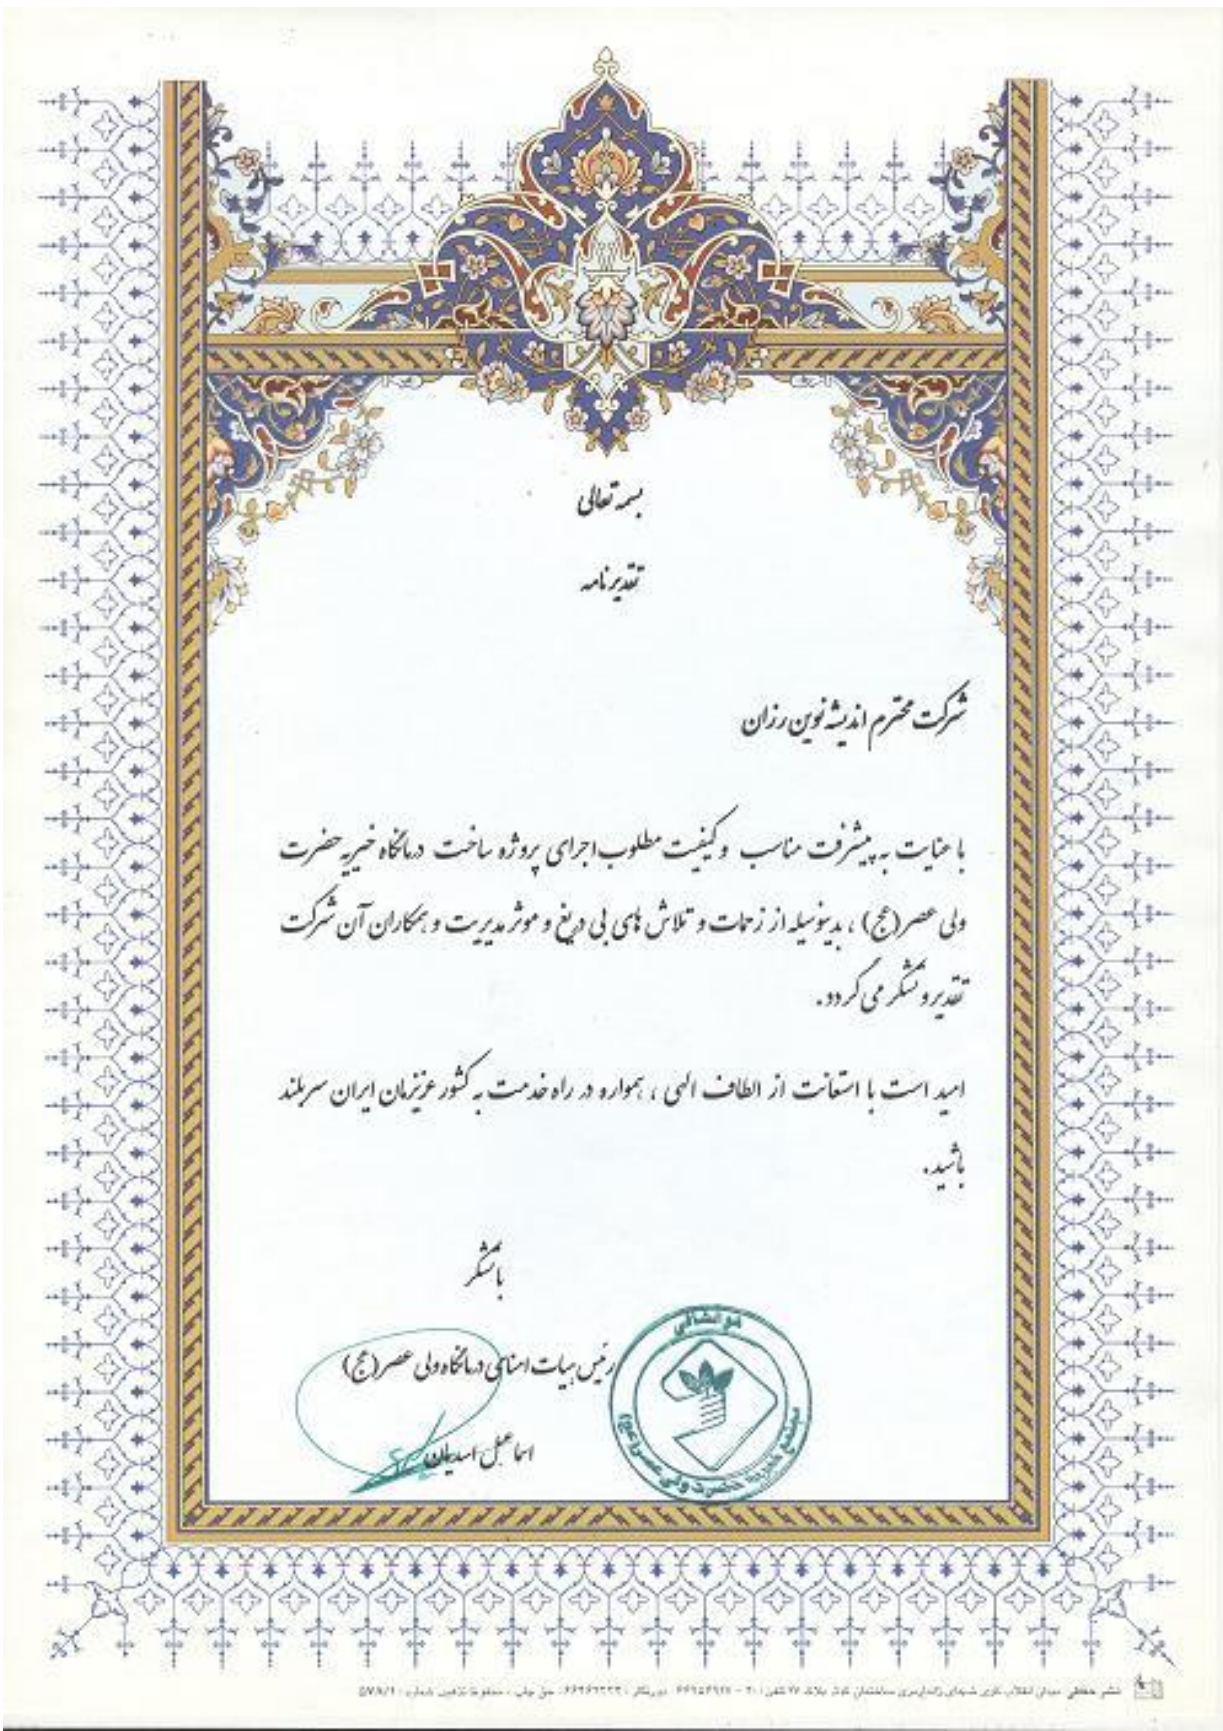 بسمه تعالی
تقدیر نامه
شرکت محترم اندیشه نوین رزان
با عنایت به پیشرفت مناسب و کیفیت مطلوب اجرای پروژه ساخت درمانگاه خیریه حضرت
ولی عصر (عج) ، بدینوسیله از زحمات و تلاش های بی دریغ و موثر مدیریت و همکاران آن شرکت
تقدیر و تشکر می گردد.
امید است با استعانت از الطاف الهی ، همواره در راه خدمت به کشور عزیزمان ایران سربلند
باشید.
با تشکر
رئیس هیات امنای درمانگاه ولی عصر (عج)
اسماعیل اسدیان
هوالشافی
مجتمع خیریه حضرت ولی عصر (عج)